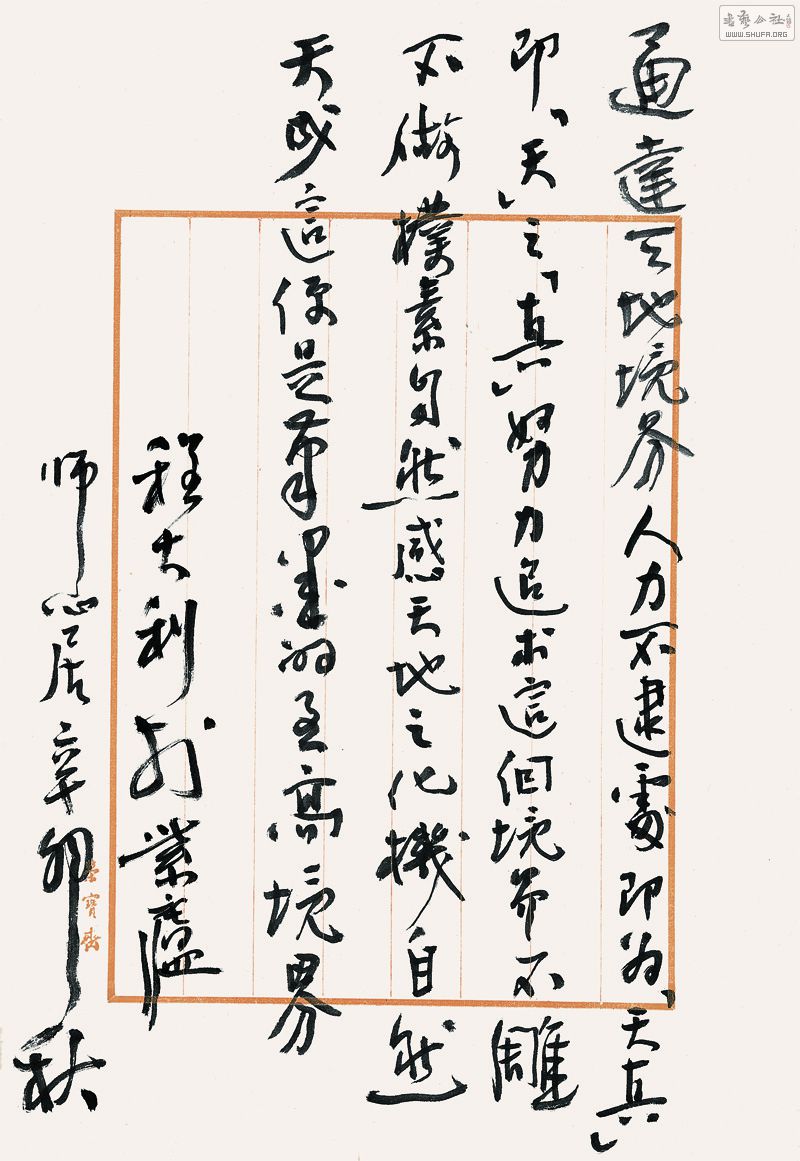 通達天地境界人力不逮處即為「天真」
即「天」之「真」努力追求這個境界不雕
不做樸素自然感天地之化機自然
天成這便是筆墨的至高境界
程大利於紫
师心居辛卯秋
寶齋
書藝公社
WWW.SHUFA.ORG